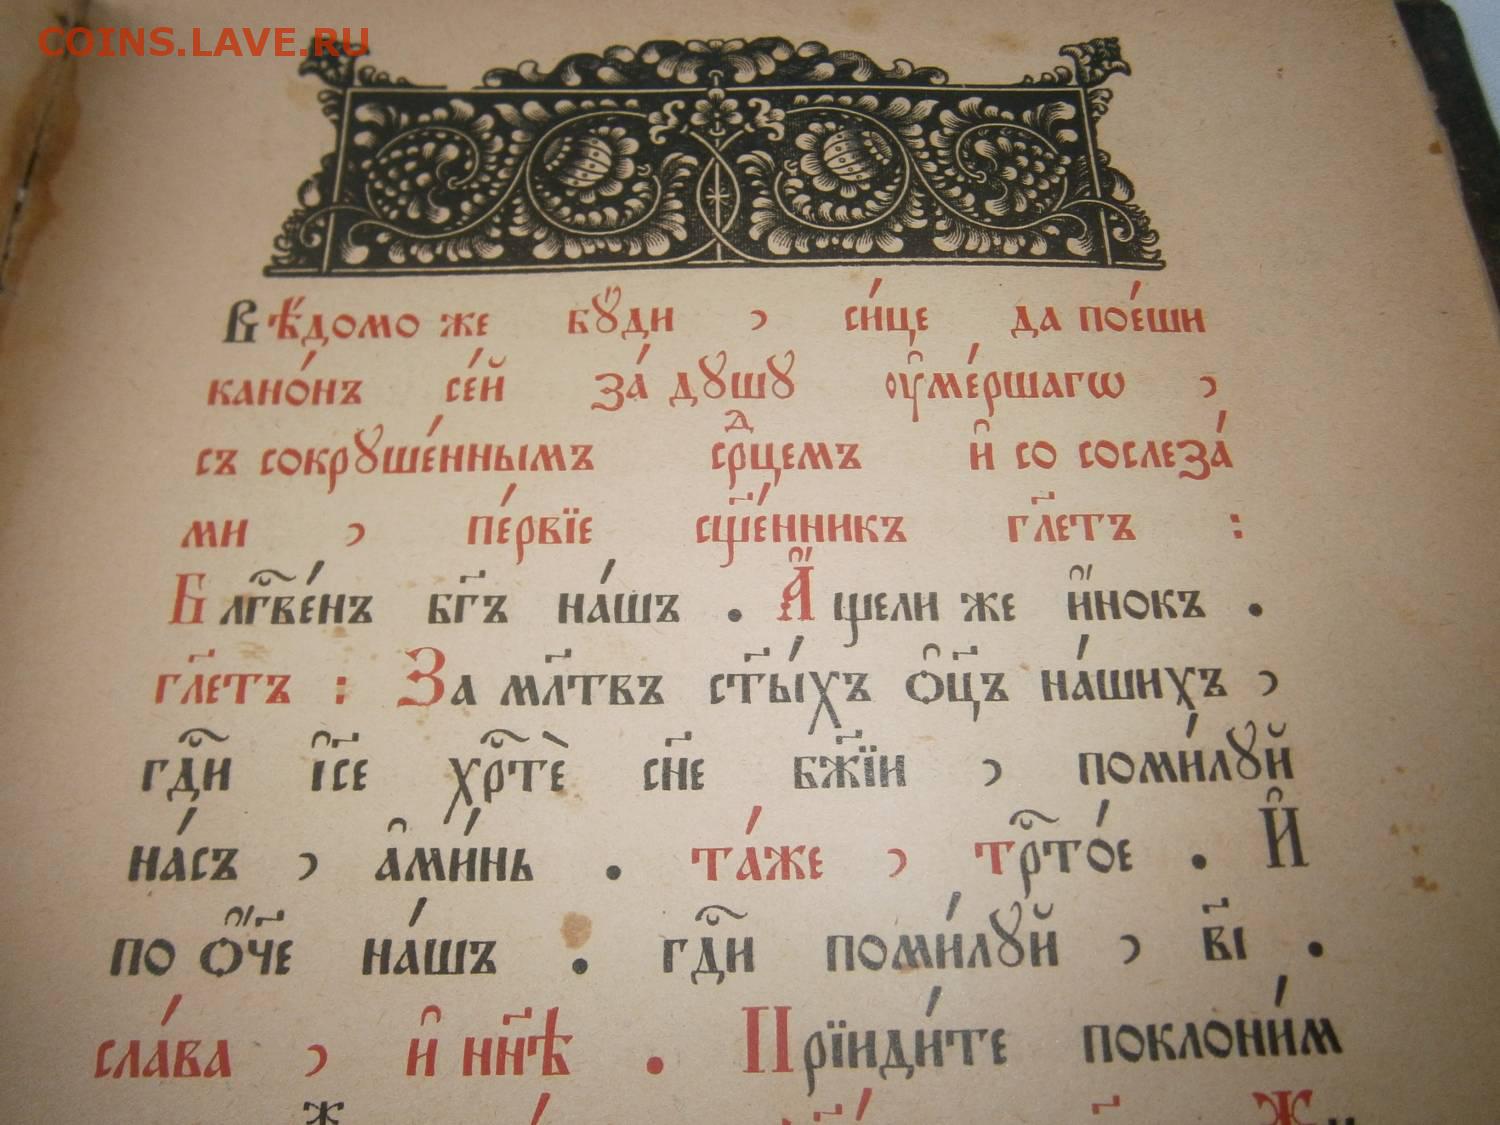 COINS.LAVE.RU
Вѣ́домо же бꙋ́ди , си́це да пое́ши
кано́нъ се́й за́ дꙋшꙋ ᲂу҆ме́ршагѡ ,
съ сокрꙋше́ннымъ срⷣцемъ и҆ со сослеза́
ми , пе́рвїе сщ҃е́нникъ гл҃етъ :
Блгⷭ҇ве́нъ бг҃ъ на́шъ . А҆́ щели же и҆́нокъ .
гл҃етъ : За мл҃твъ ст҃ы́хъ ѻ҆ц҃ъ на́шихъ ,
гдⷭ҇и і҆с҃е хрⷭ҇тѐ сн҃е бж҃їи , поми́лꙋй
на́съ , а҆ми́нь . та́же , трⷭ҇то́е . И҆
по ѻ҆́ч҃е на́шъ . гдⷭ҇и поми́лꙋй , в҃і .
сла́ва , и҆ нн҃ѣ . Прїиди́те поклони́м